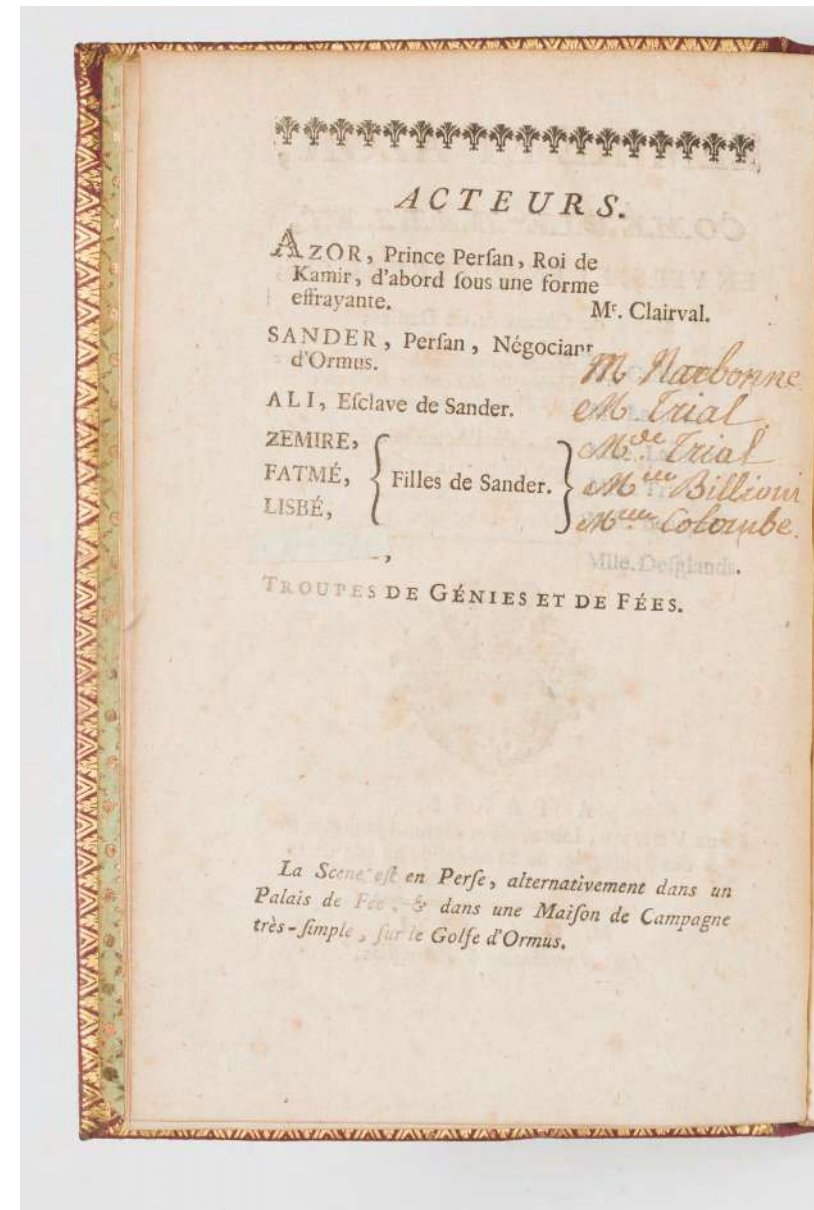 ACTEURS.
AZOR, Prince Perſan, Roi de
Kamir, d'abord ſous une forme
effrayante. Mr. Clairval.
SANDER, Perſan, Négociant
d'Ormus. M Narbonne
ALI, Eſclave de Sander. M. Trial.
ZEMIRE, Mde Trial
FATMÉ, Filles de Sander. Melle Billioni
LISBÉ, Melle Colombe.
Mlle. Deſglands.
TROUPES DE GÉNIES ET DE FÉES.
La Scene eſt en Perſe, alternativement dans un
Palais de Fée, & dans une Maiſon de Campagne
très-ſimple, ſur le Golfe d'Ormus.